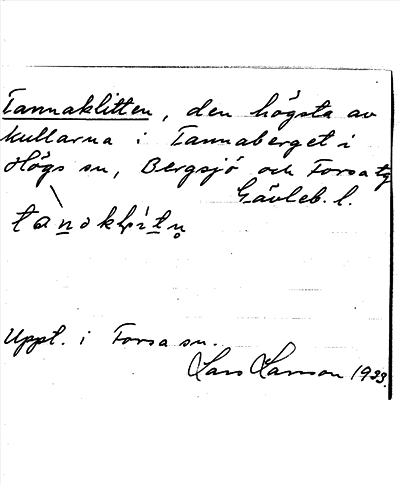 Tannaklitten, den högsta av
kullarna i Tannaberget i
Högs sn, Bergsjö och Forsa tg
Gävleb. l.
Uppt. i Forsa sn.
Lars Larsson 1933.